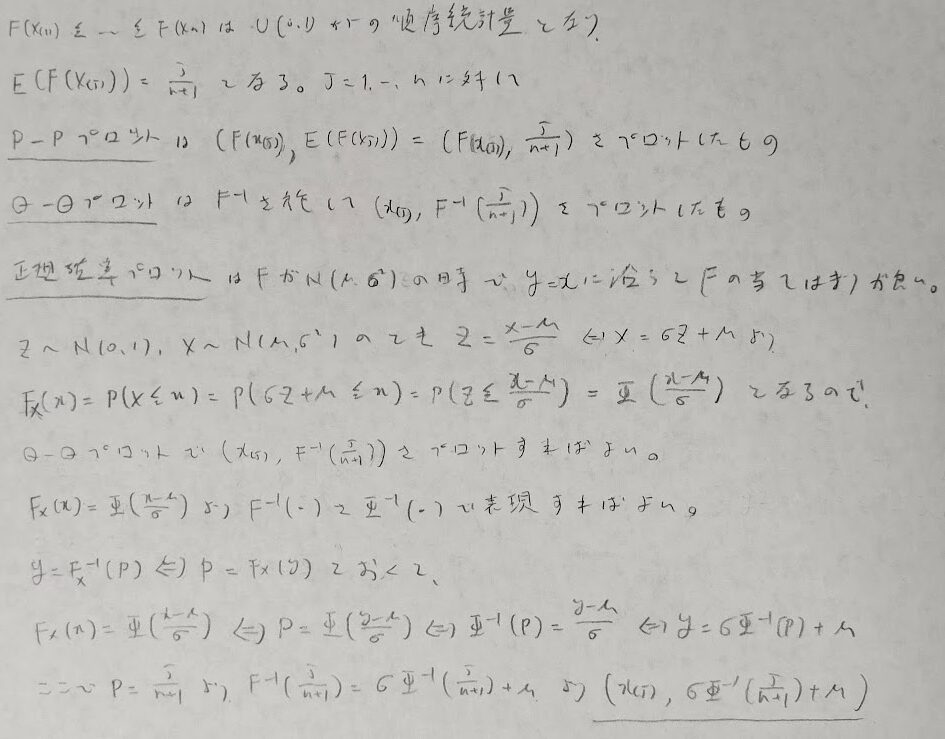 F(X(1)) ≦ … ≦ F(X(n)) は U(0,1) からの順序統計量となり、
E(F(X(j))) = j/(n+1) となる。j=1,…,n に対して
P-Pプロット は (F(x(j)), E(F(X(j)))) = (F(x(j)), j/(n+1)) をプロットしたもの
Q-Qプロット は F⁻¹を施して (x(j), F⁻¹(j/(n+1))) をプロットしたもの
正規確率プロット は FがN(μ,σ²)の時で y=xに沿うとFの当てはまりが良い。
Z~N(0,1), X~N(μ,σ²) のとき Z = (x-μ)/σ ⇔ X = σZ+μ より
Fx(x) = P(X≦x) = P(σZ+μ ≦ x) = P(Z ≦ (x-μ)/σ) = Φ((x-μ)/σ) となるので、
Q-Qプロットで (x(j), F⁻¹(j/(n+1))) をプロットすればよい。
Fx(x) = Φ((x-μ)/σ) より F⁻¹(・)をΦ⁻¹(・)で表現すればよい。
y = Fx⁻¹(P) ⇔ P = Fx(y) とおくと、
Fx(x) = Φ((x-μ)/σ) ⇔ P = Φ((y-μ)/σ) ⇔ Φ⁻¹(P) = (y-μ)/σ ⇔ y = σΦ⁻¹(P)+μ
ここで P = j/(n+1) より F⁻¹(j/(n+1)) = σΦ⁻¹(j/(n+1))+μ より (x(j), σΦ⁻¹(j/(n+1))+μ)